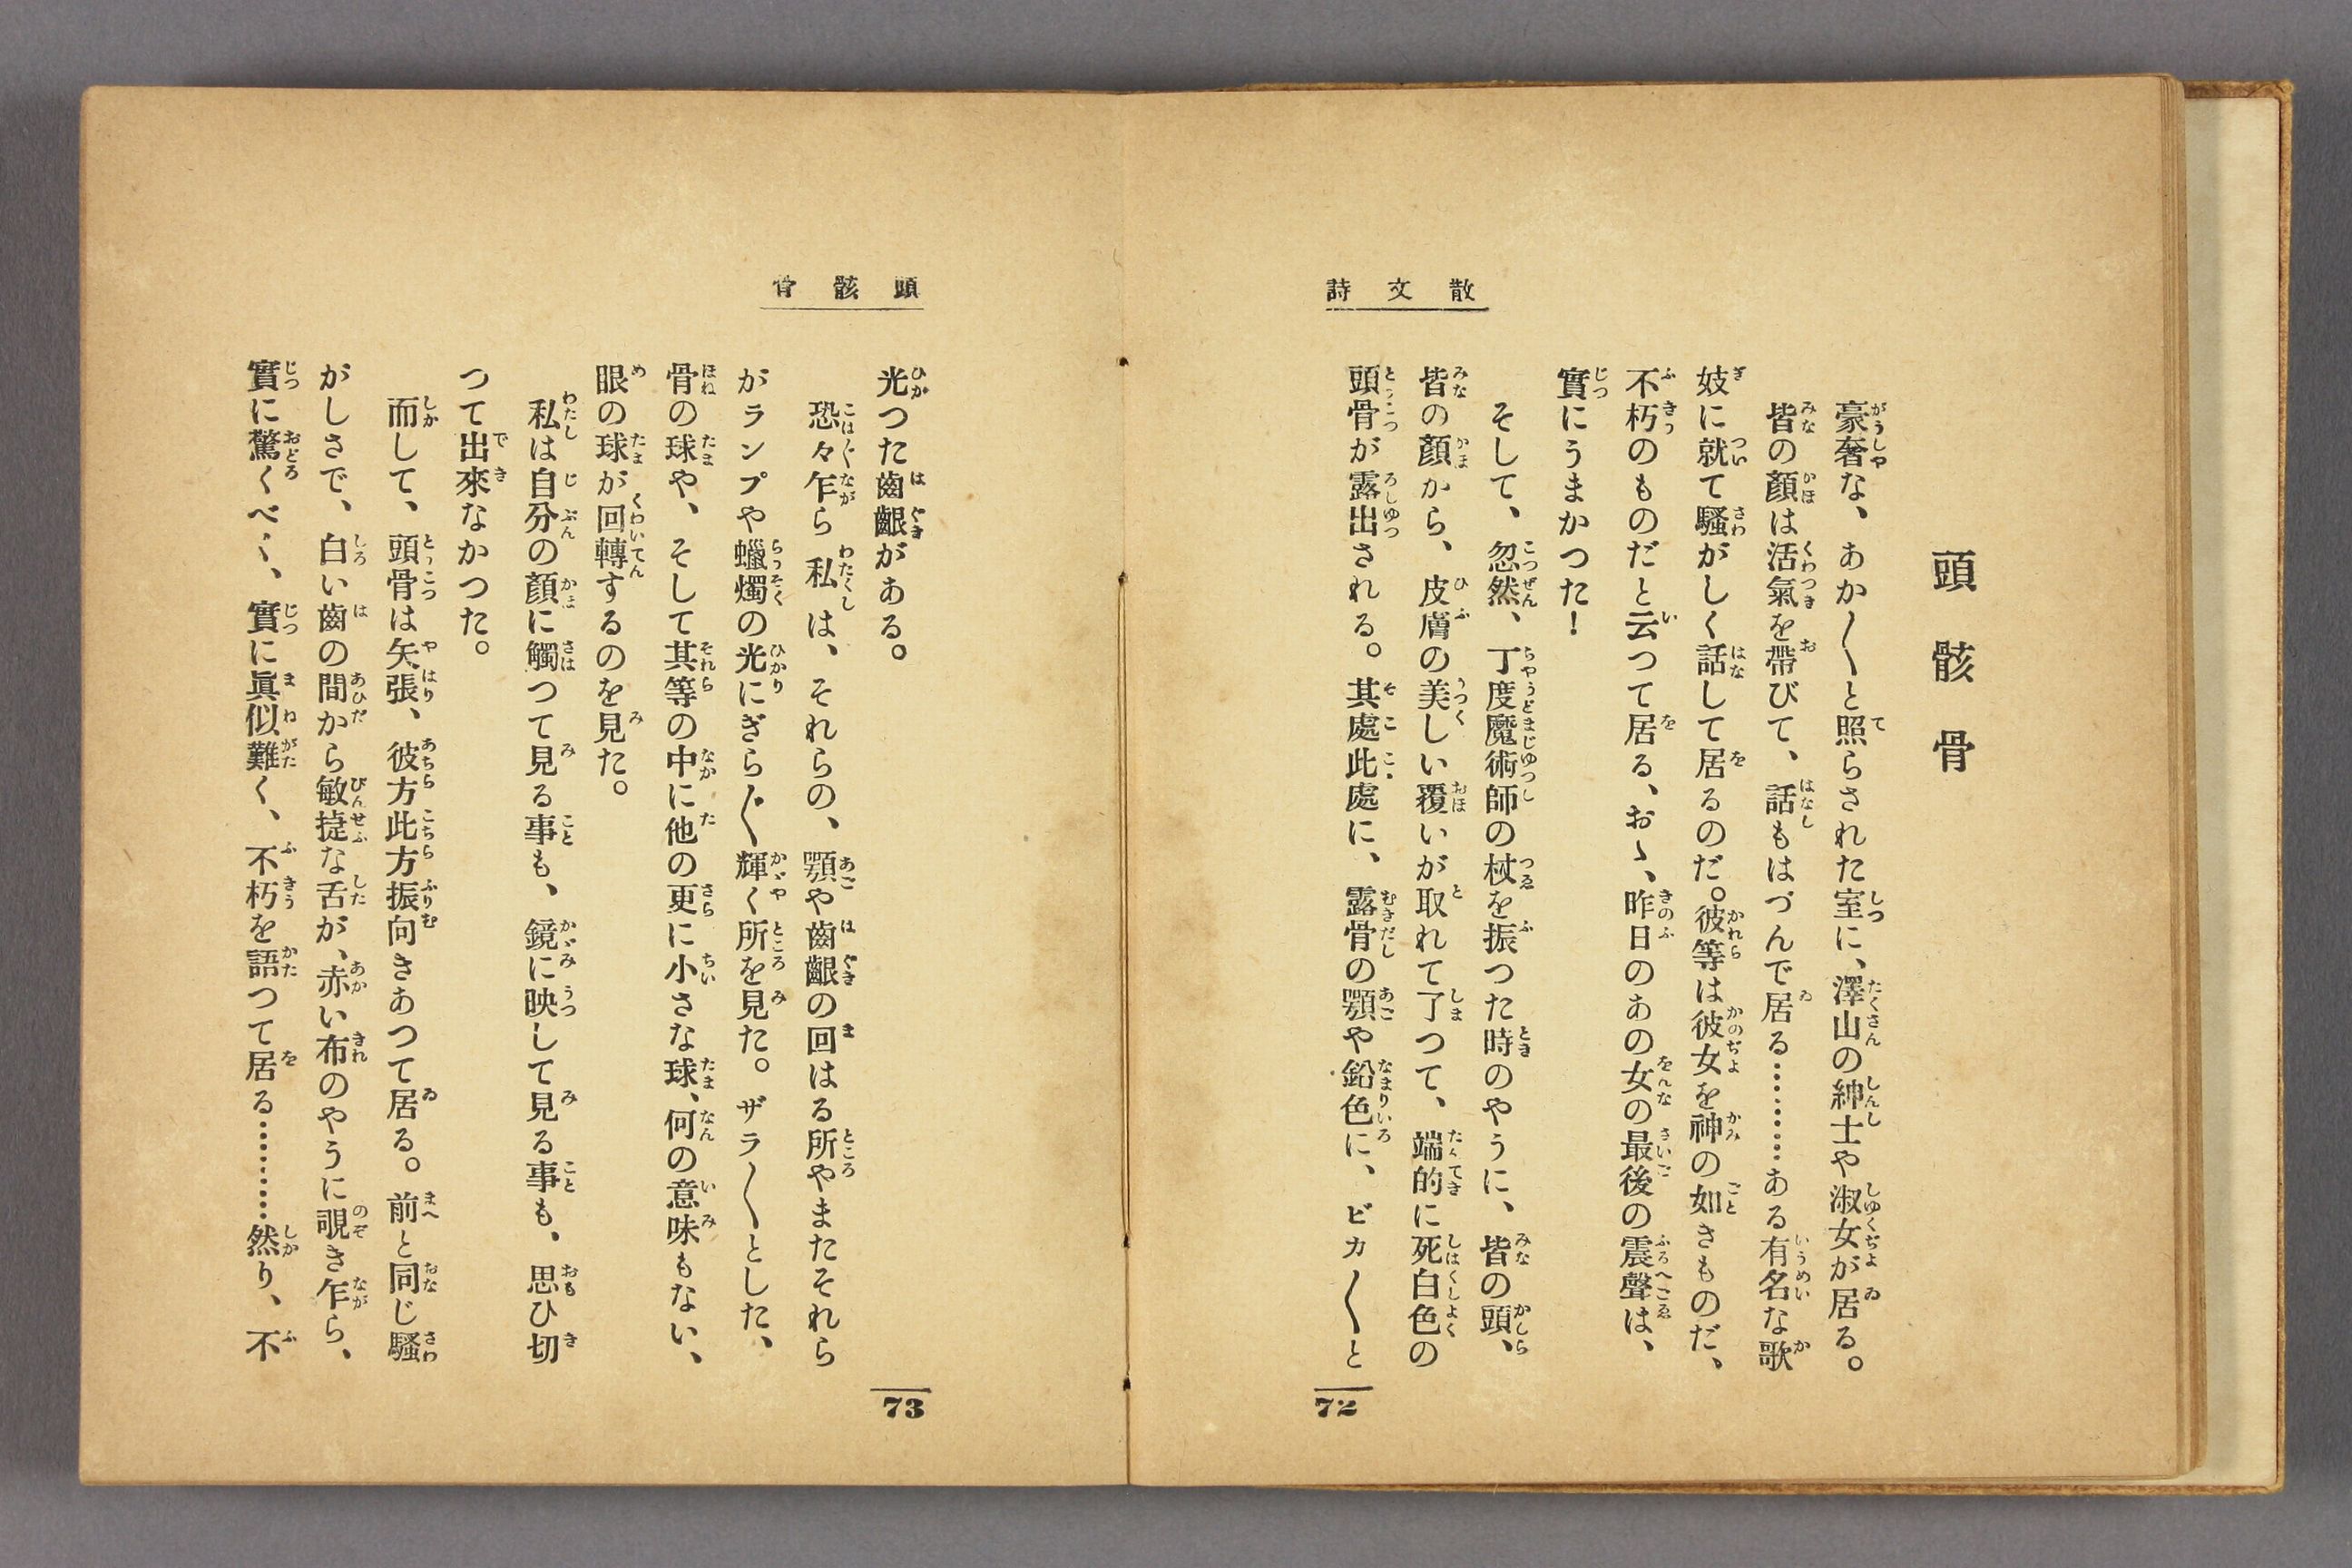 散文詩
頭骸骨
豪奢な、あか〳〵と照らされた室に、澤山の紳士や淑女が居る。
皆の顏は活氣を帶びて、話もはづんで居る………ある有名な歌
妓に就いて騷がしく話して居るのだ。彼等は彼女を神の如きものだ、
不朽のものだと云つて居る、おゝ、昨日のあの女の最後の震聲は、
實にうまかつた！
そして、忽然、丁度魔術師の杖を振つた時のやうに、皆の頭、
皆の顏から、皮膚の美しい覆いが取れて了つて、端的に死白色の
頭骨が露出される。其處此處に、露骨の顎や鉛色に、ピカ〳〵と
72
頭骸骨
光つた齒齦がある。
恐々乍ら私は、それらの、顎や齒齦の回はる所やまたそれら
がランプや蠟燭の光にぎら〴〵輝く所を見た。ザラ〳〵とした、
骨の球や、そして其等の中に他の更に小さな球、何の意味もない、
眼の球が回轉するのを見た。
私は自分の顏に觸つて見る事も、鏡に映して見る事も、思ひ切
つて出來なかつた。
而して、頭骨は矢張、彼方此方振向きあつて居る。前と同じ騷
がしさで、白い齒の間から敏捷な舌が、赤い布のやうに覗き乍ら、
實に驚くべく、實に眞似難く、不朽を語つて居る………然り、不
73